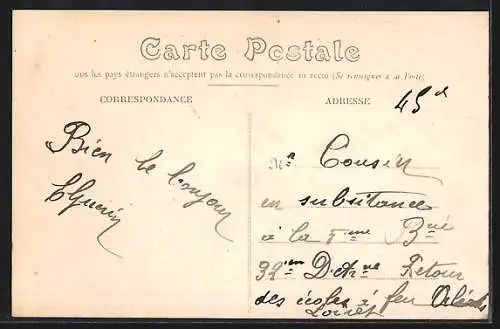 Carte Postale
ous les pays étrangers n'acceptent pas la correspondance au recto (Se renseigner à la Poste)
CORRESPONDANCE
ADRESSE
45
Bien le bonjour
EGuerin
Mr Cousin
en subsistance
à la 5me Bie
32em D'Arne Retour
des écoles à feu Orléans
Loiret